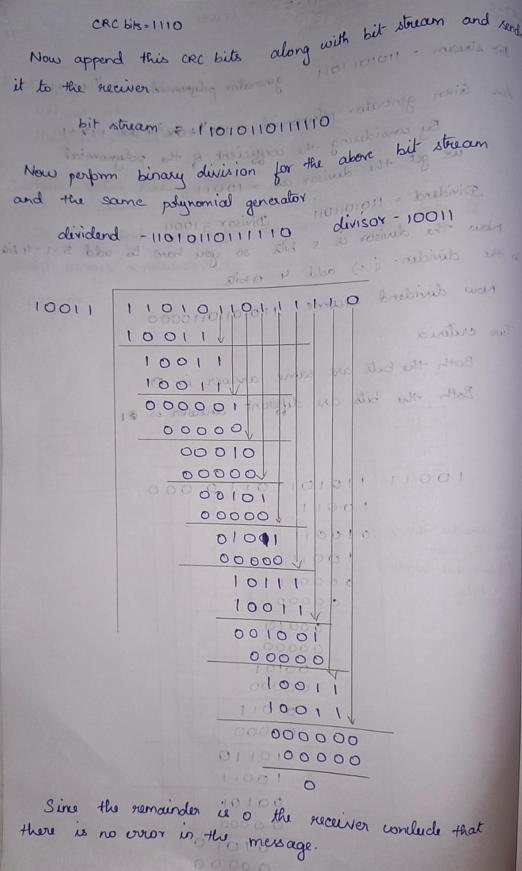 CRC bits = 1110
Now append this CRC bits along with bit stream and send
it to the reciver.
bit stream = 11010110111110
Now perform binary division for the above bit stream
and the same polynomial generator.
dividend - 11010110111110 divisor - 10011
10011 11010110111110
10011
10011
10011
000001
00000
00010
00000
00101
00000
01011
00000
10111
10011
001001
00000
10011
10011
000000
00000
0
Since the remainder is 0 the receiver conclude that
there is no error in the message.